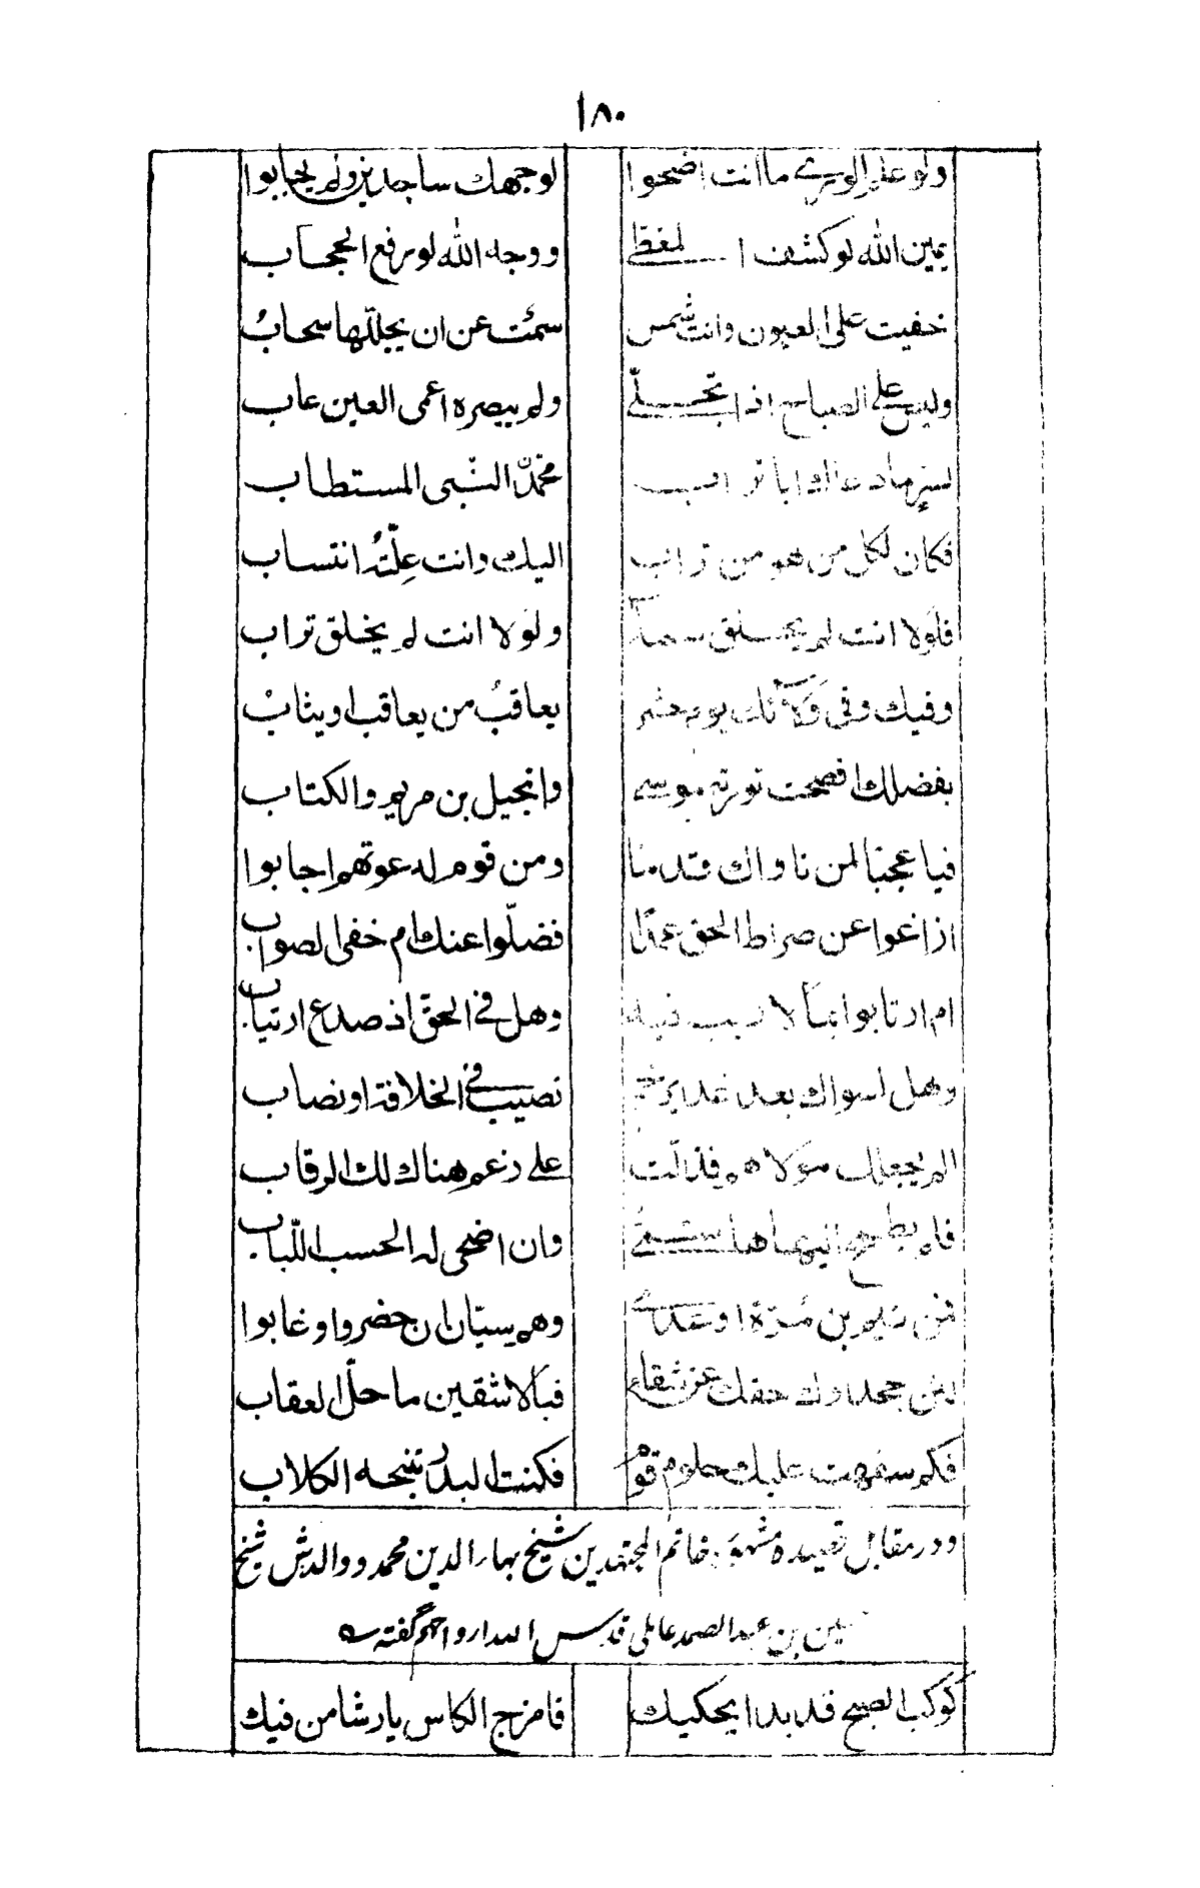 ١٨٠
ولو علم الورى ما انت اضحوا لوجهك ساجدين ولم يحابوا
يمين الله لو كشف المغطى ووجه الله لو رفع الحجاب
خفيت على العيون وانت شمس سمئت عن ان يجللّها سحابُ
وليس على الصباح اذا تجلّى ولم يبصره اعمى العين عاب
دعاك ابا تراب محمدّ النّبى المستطاب
فكان لكل من هو من تراب اليك وانت علّتُه انتساب
فلولا انت لم يخلق سماء ولولا انت لم يخلق تراب
وفيك وفى ولآئك يوم حشر يعاقبُ من يعاقب او يثابُ
بفضلك افصحت تورية موسى وانجيل بن مريم والكتاب
فيا عجبًا لمن ناواك قدمًا ومن قوم لدعوتهم اجابوا
ازاغوا عن صراط الحق عمدًا فضلّوا عنك ام خفى الصواب
ام ارتابوا بما لا ريب فيه وهل فى الحقّ اذ صدع ارتياب
وهل لسواك بعد غدير خم نصيب فى الخلافة او نصاب
الم يجعلك مولاهم فذلّت على رغم هناك لك الرقاب
فلم يطمح اليها هاشمى وان اضحى له الحسب اللّباب
فمن تيم بن مُرّة او عدى وهم سيّان ان حضروا وغابوا
لئن جحدوك حقك عن شقاء فبالاشقين ما حلّ العقاب
فكم سفهت عليك حلوم قوم فكنت البدر تنبحه الكلاب
ودر مقابل قصيده مشهور خاتم المجتهدين شيخ بهاء الدين محمد ووالدش شيخ
حسين بن عبد الصمد عاملى قدس الله ارواحهم گفته
كوكب الصبح قد بدا يحكيك فامزج الكاس يا رشا من فيك